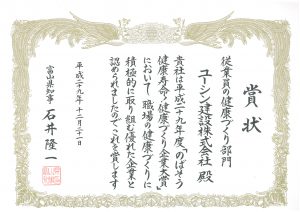 賞状
従業員の健康づくり部門
ユーシン建設株式会社 殿
貴社は平成二十九年度「のばそう
健康寿命!健康づくり企業大賞」
において、職場の健康づくりに
積極的に取り組む優れた企業と
認められましたのでこれを賞します
平成二十九年十二月二十一日
富山県知事 石井隆一